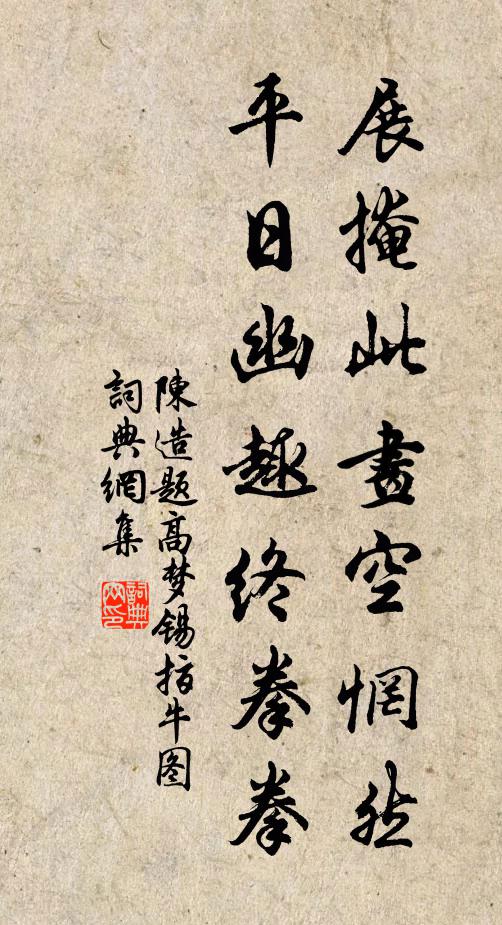 展掩此畫空惘然
平日幽趣终拳拳
陳造题高梦锡指牛图
詞典網集
詞典網印